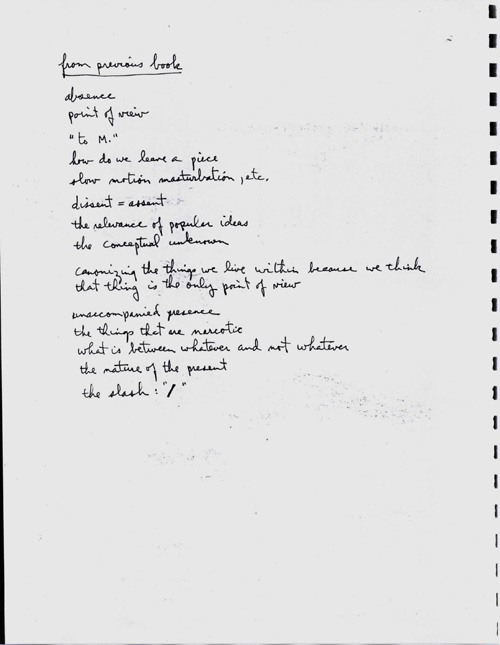 from previous book
absence
point of view
"to M."
how do we leave a piece
slow motion masturbation, etc.
dissent = assent
the relevance of popular ideas
the conceptual unknown
canonizing the things we live within because we think
that thing is the only point of view
unaccompanied presence
the things that are narcotic
what is between whatever and not whatever
the nature of the present
the slash: "/"